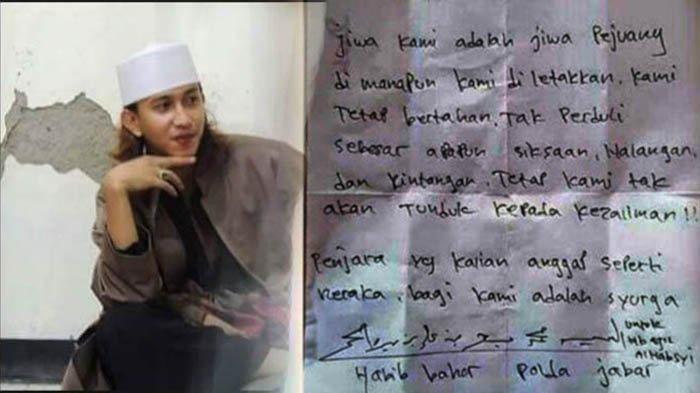 jiwa kami adalah jiwa Pejuang
di manapun kami di letakkan. kami
Tetap bertahan. Tak Perduli
sebesar apapun siksaan, Halangan,
dan Rintangan. Tetap kami tak
akan Tunduk kepada kezaliman!!
Penjara yg kalian anggap seperti
Neraka, bagi kami adalah syurga
untuk
Alhabsyi
Habib bahar Polda jabar